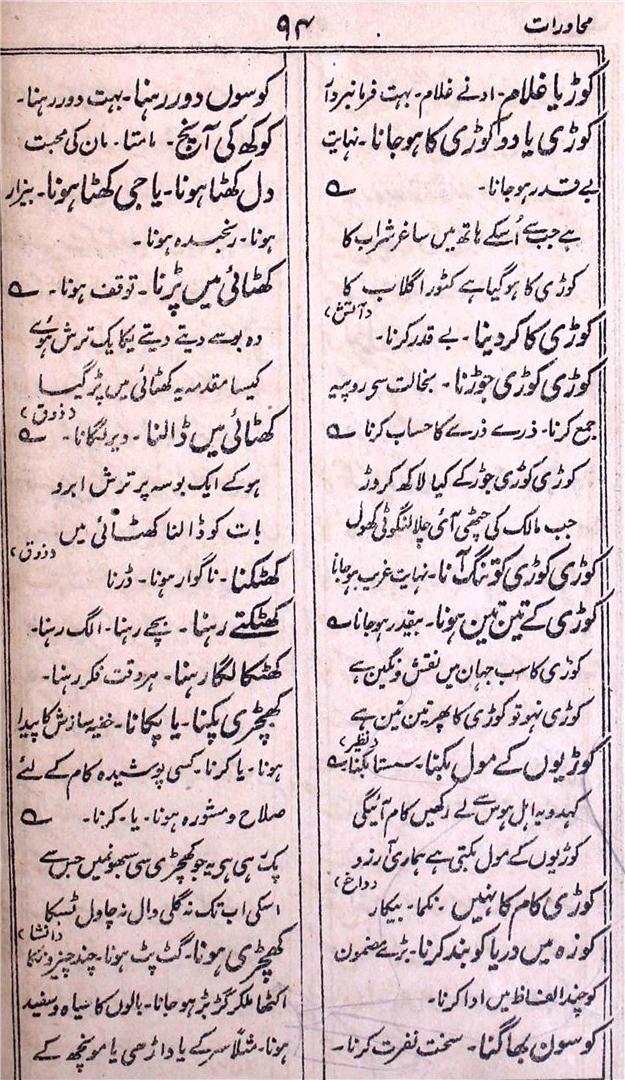 محاورات
۹۴
کوڑیا غلام۔ ادنے غلام۔ بہت فرمانبردار
کوڑی یا دو کوڑی کا ہو جانا۔ نہایت
بے قدر ہو جانا۔ ؎
ہے جب سے اُسکے ہاتھ میں ساغر شراب کا
کوڑی کا ہو گیا ہے کٹورا گلاب کا
(آتش)
کوڑی کا کر دینا۔ بے قدر کرنا۔
کوڑی کوڑی جوڑنا۔ بخالت سی روپیہ
جمع کرنا۔ ذرے ذرے کا حساب کرنا ؎
کوڑی کوڑی جوڑ کے کیا لاکھ کروڑ
جب مالک کی چٹھی آئی چلا لنگوٹی کھول
کوڑی کوڑی کو تنگ آنا۔ نہایت غریب ہوجانا
کوڑی کے تین تین ہونا۔ بیقدر ہوجانا ؎
کوڑی کا سب جہان میں نقش و نگین ہے
کوڑی نہو تو کوڑی کا پھر تین تین ہے
(نظیر)
کوڑیوں کے مول بکنا۔ سستا بکنا ؎
کہدو یہ اہل ہوس سے لے رکھیں کام آئیگی
کوڑیوں کے مول بکتی ہے ہماری آرزو
(داغ)
کوڑی کام کا نہیں۔ نکما۔ بیکار
کوزہ میں دریا کو بند کرنا۔ بڑے مضمون
کو چند الفاظ میں ادا کرنا۔
کوسون بھاگنا۔ سخت نفرت کرنا۔
کوسوں دور رہنا۔ بہت دور رہنا۔
کوکھ کی آنچ۔ مامتا۔ مان کی محبت
دل کھٹا ہونا۔ یا جی کھٹا ہونا۔ بیزار
ہونا۔ رنجیدہ ہونا۔
کھٹائی میں پڑنا۔ توقف ہونا۔ ؎
وہ بوسے دیتے دیتے یکایک ترش ہوئے
کیسا مقدمہ یہ کھٹائی میں پڑ گیا
(ذوق)
کھٹائی میں ڈالنا۔ دیر لگانا۔ ؎
ہو کے ایک بوسہ پر ترش ابرو
بات کو ڈالنا کھٹائی میں
(ذوق)
کھٹکنا۔ ناگوار ہونا۔ ڈرنا
کھٹکتے رہنا۔ بچے رہنا۔ الگ رہنا۔
کھٹکا لگا رہنا۔ ہر وقت فکر رہنا۔
کھچڑی پکنا۔ یا پکانا۔ خفیہ سازش کا پیدا
ہونا۔ یا کرنا۔ کسی پوشیدہ کام کے لئے
صلاح و مشورہ ہونا۔ یا۔ کرنا۔ ؎
پک ہی ہی یہ جو کھچڑی سی سبھو نمیں جس سے
اسکی اب تک نہ گلی دال نہ چاول ٹسکا
(انشا)
کھچڑی ہونا۔ گٹ پٹ ہونا۔ چند چیزونکا
اکٹھا ملکر گڑ بڑ ہو جانا۔ بالوں کا سیاہ و سفید
ہونا۔ مثلاً سر کے یا داڑھی یا مونچھ کے